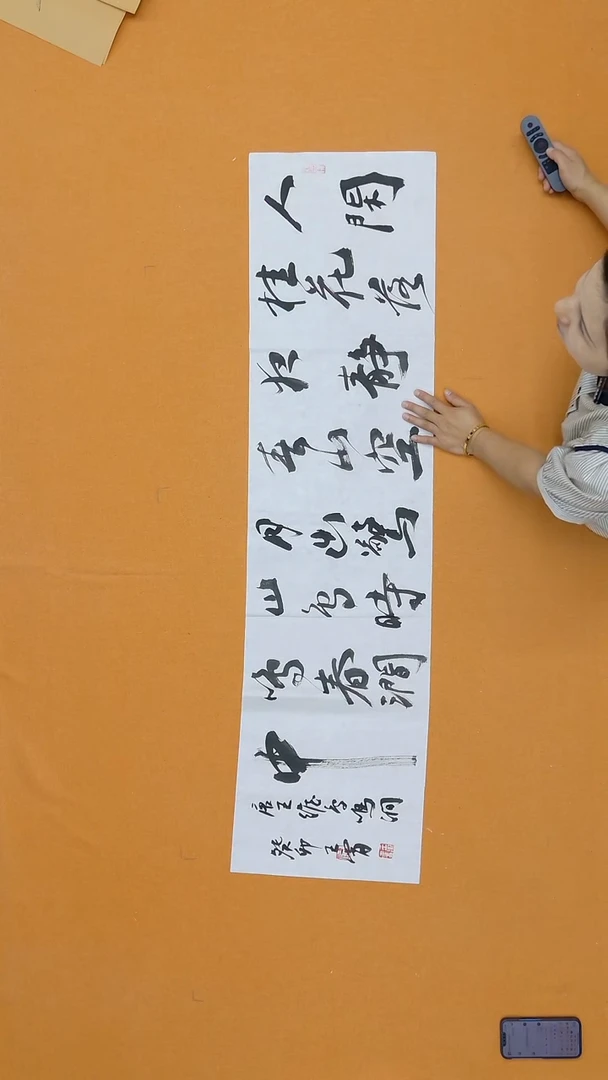 人閑
桂花落
夜靜
春山空
月出驚
山鳥時
鳴春澗
中
唐王維鳥鳴澗
癸卯